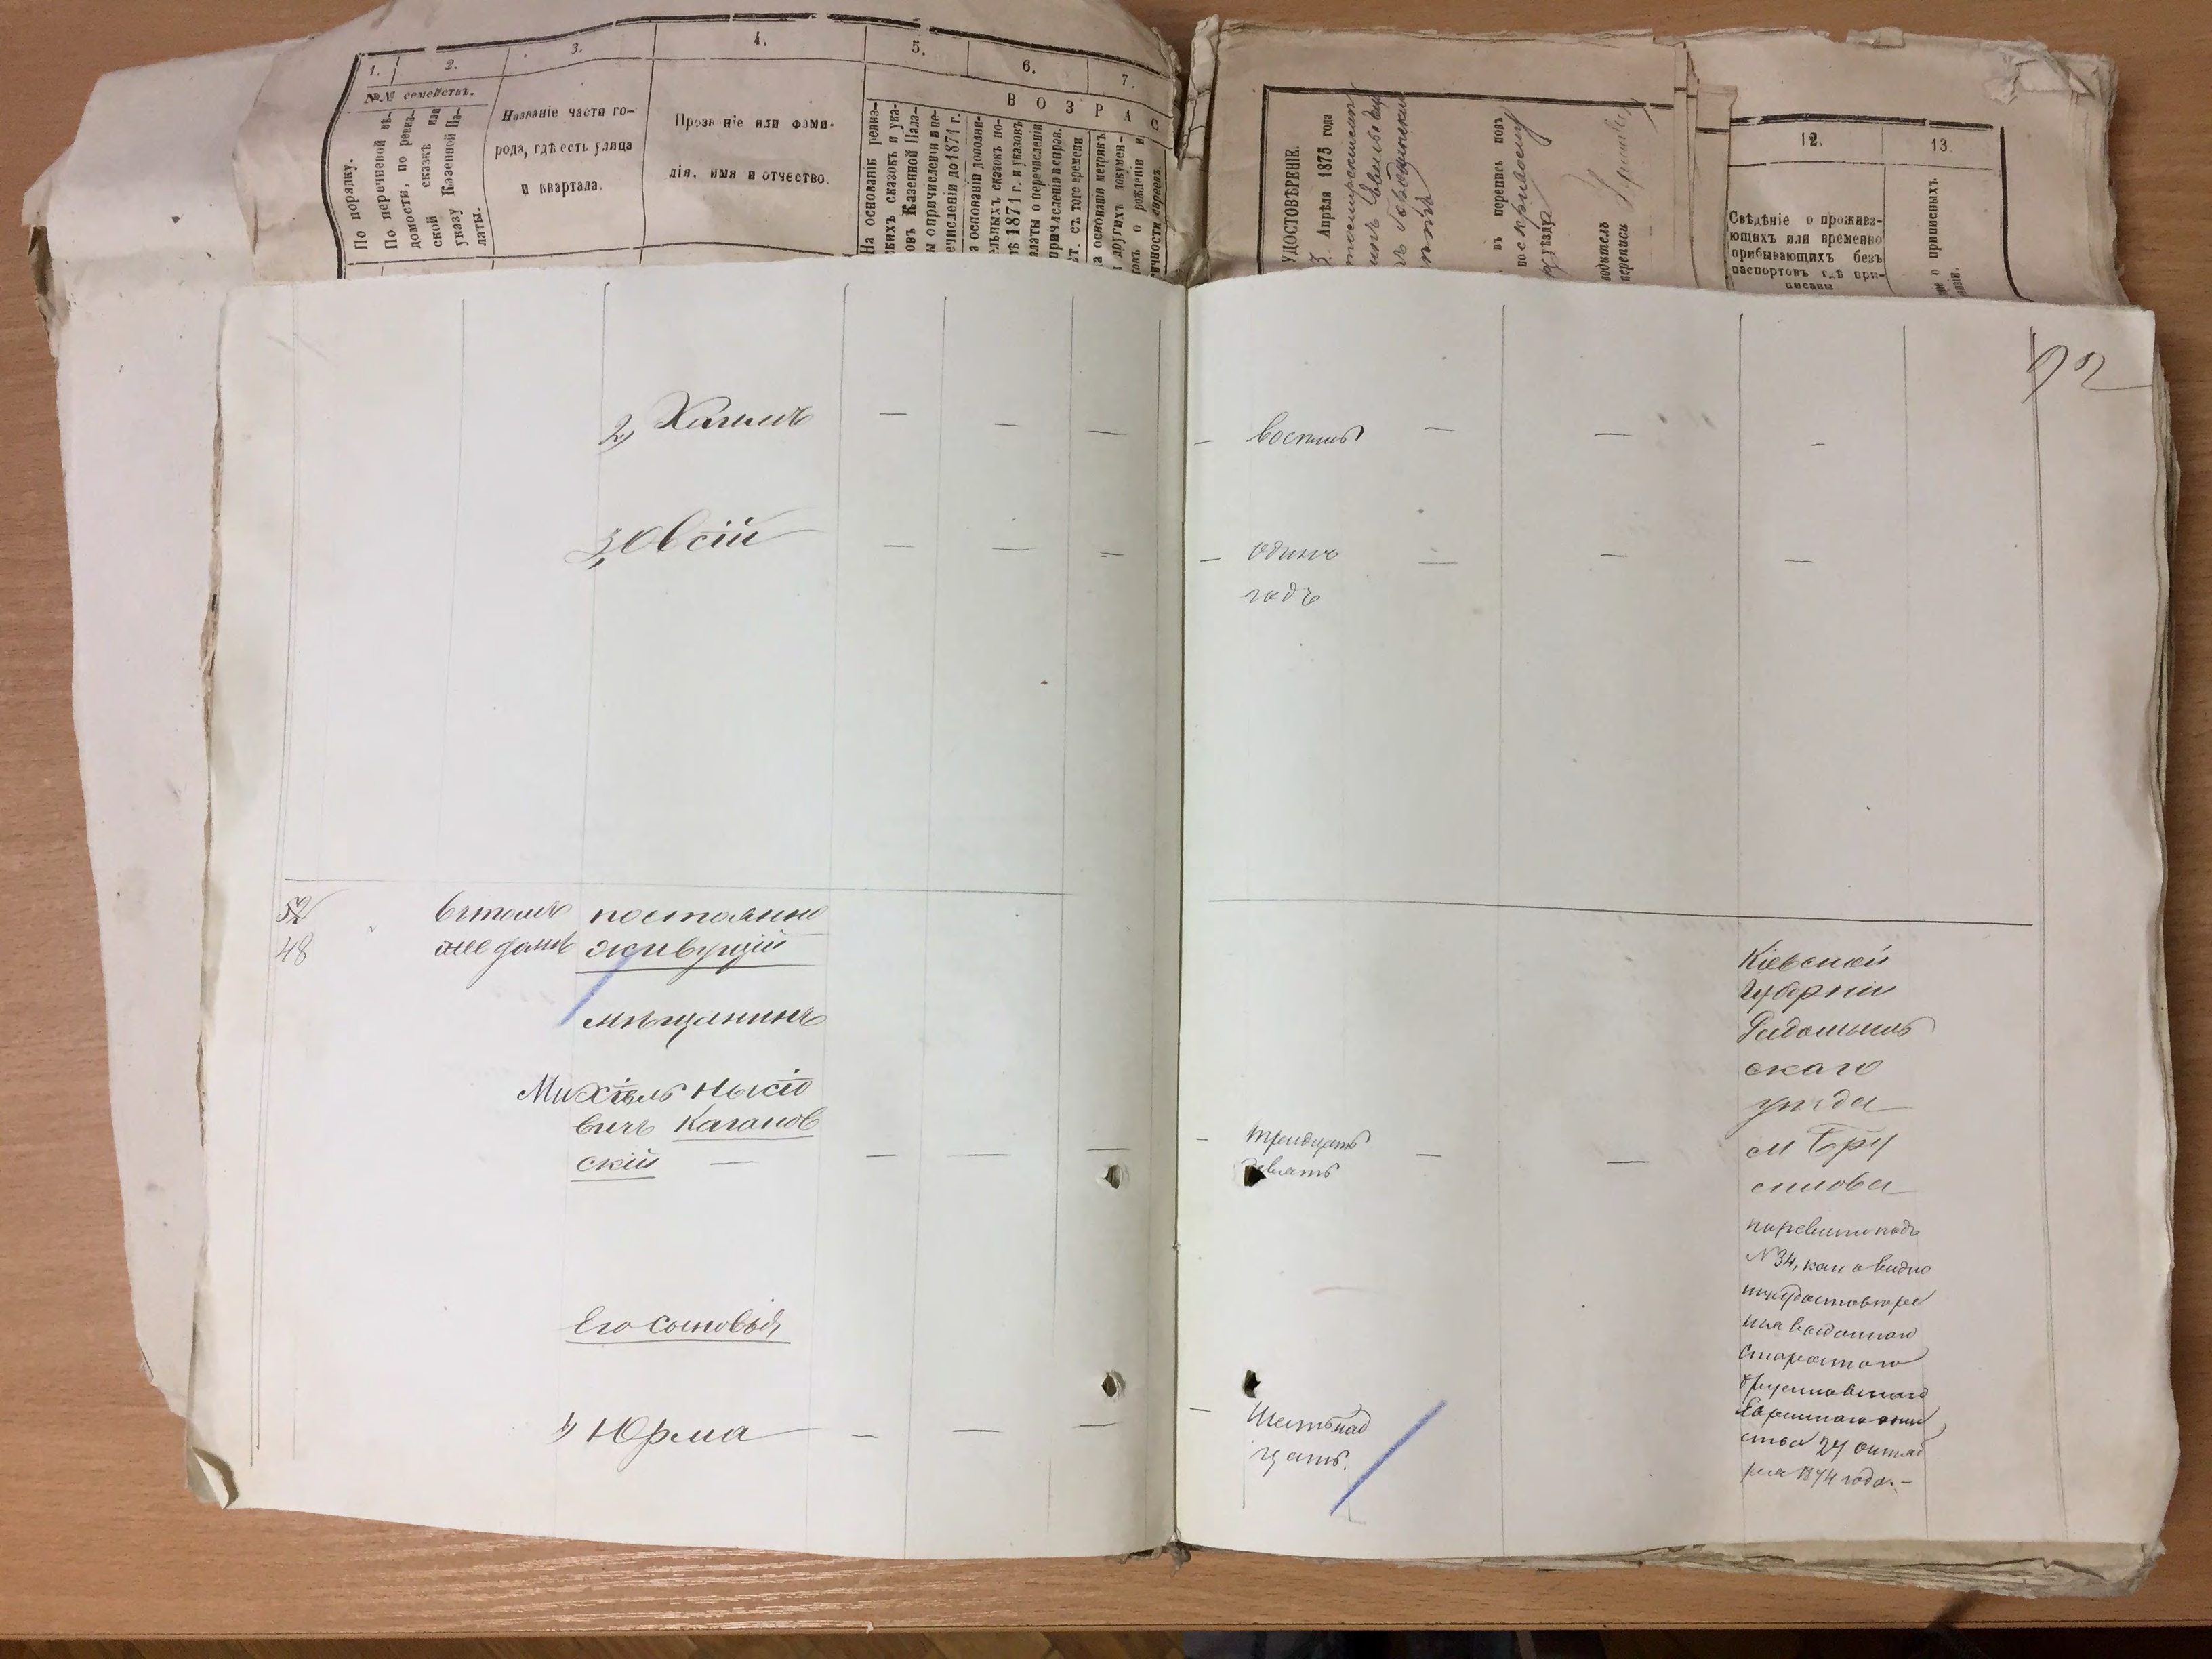 1.
2.
3.
4.
5.
6.
7.
№№ семействъ.
В О З Р А С
По порядку.
По перечневой вѣ-
домости, по ревиз-
ской сказкѣ или
указу Казенной Па-
латы.
Названіе части го-
рода, гдѣ есть улица
и квартала.
Прозваніе или фами-
лія, имя и отчество.
На основаніи ревиз-
скихъ сказокъ и ука-
овъ Казенной Пала-
ы о причисленіи и пе-
ечисленіи до 1871 г.
а основаніи дополни-
ельныхъ сказокъ по-
лѣ 1871 г. и указовъ
алаты о перечисленіи
причисленіи и исправ.
ѣт. съ того времени
а основаніи метрикъ
и другихъ докумен-
товъ о рожденіи и
ичности евреевъ.
УДОСТОВѢРЕНІЕ.
Апрѣля 1875 года
въ перепись подъ
по
уѣзда
водитель
переписи
12.
13.
Свѣдѣніе о прожива-
ющихъ или временно
прибывающихъ безъ
паспортовъ гдѣ при-
писаны
о приписныхъ
92
2, Хаимъ — — —
— восемь — — —
3, Овсій — — —
— одинъ — — —
годъ
52
48
въ томъ
же домѣ
постоянно
живущій
мѣщанинъ
Михіель Нысіо
вичъ Каганов
скій — — — —
— тридцать — —
девять
Кіевской
Губерніи
Радомысль
скаго
уѣзда
м Бру
силова
по ревизіи подъ
№ 34, какъ видно
изъ удостовѣре
нія выданнаго
Старостою
Брусиловскаго
Еврейскаго обще
ства 24 октяб
ря 1874 года. —
Его сыновья,
1, Юрма — — —
— Шестьнад
цать.